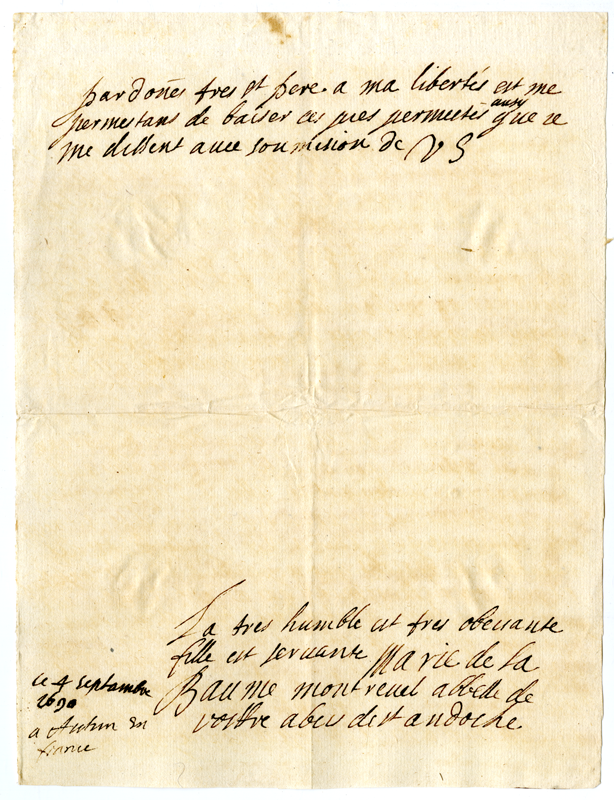 pardonés tres st pere a ma libertés est me
permestans de baiser ces pies permectés ausy que ce
me disent avec soumision de V S
La tres humble est tres obeisante
fille est servante Marie de la
Baume montrevel abbesse de
vostre abeis de st andoche
ce 4 septambre
1690
a Autun en
france